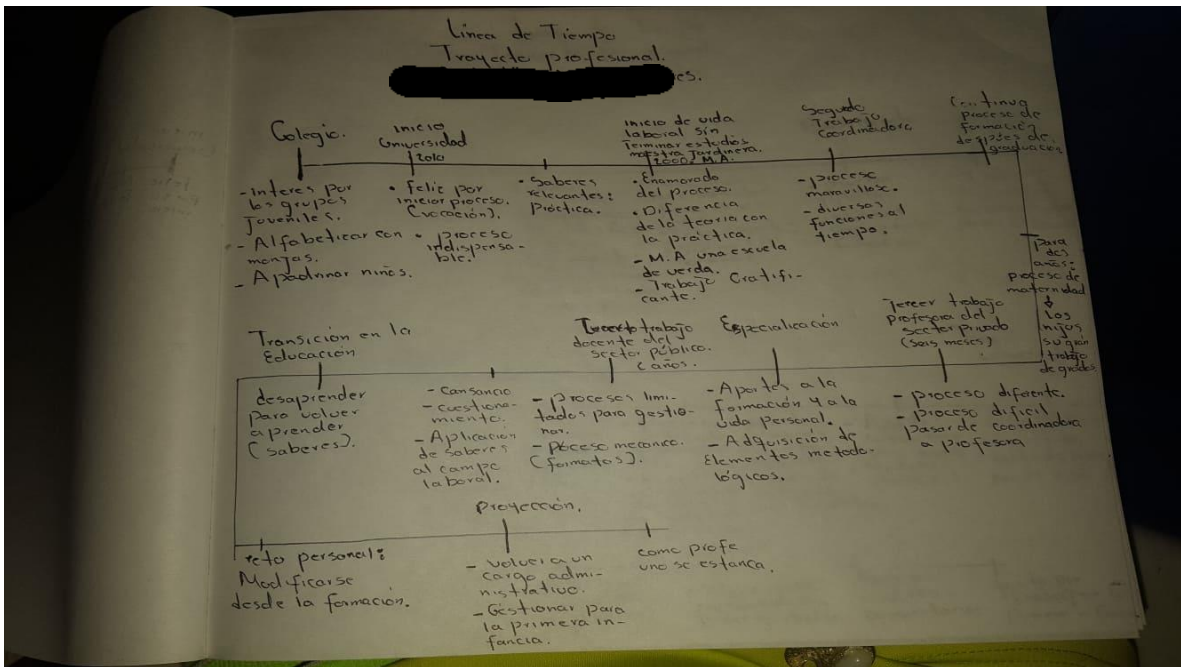 Línea de Tiempo
Trayecto profesional.
es.
Colegio.
- interes por
los grupos
Juveniles.
- Alfabetizar con
monjas.
- Apadrinar niños.
inicio
Universidad
2010
• Feliz por
iniciar proceso.
(vocación).
• proceso
indispensa-
ble.
• Saberes
relevantes:
Práctica.
inicio de vida
laboral sin
Terminar estudios
maestra jardinera.
M.A.
• Enamorada
del proceso.
• Diferencia
de la teoría con
la práctica.
- M.A una escuela
de verda.
- Trabajo Gratifi-
cante.
Segundo
Trabajo
Coordinadora
- proceso
maravilloso.
- diversas
funciones al
tiempo.
Continua
proceso de
formación
después de
graduación
para
dos
años:
proceso de
maternidad
los
hijos
su gran
trabajo
de grados.
Tercer trabajo
profesora del
sector privado
(seis meses)
- proceso diferente.
- proceso difícil
pasar de coordinadora
a profesora
Especialización
- Aportes a la
formación y a la
vida personal.
- Adquisición de
Elementos metodo-
lógicos.
trabajo
docente del
sector público.
años.
- procesos limi-
tados para gestio-
nar.
- proceso mecanico.
(formatos).
- Cansancio
- cuestiona-
miento.
- Aplicación
de saberes
al campo
laboral.
Transición en la
Educación
desaprender
para volver
aprender
(saberes).
reto personal:
Modificarse
desde la formación.
Proyección.
- volver a un
cargo admi-
nistrativo.
- Gestionar para
la primera in-
fancia.
como profe
uno se estanca.